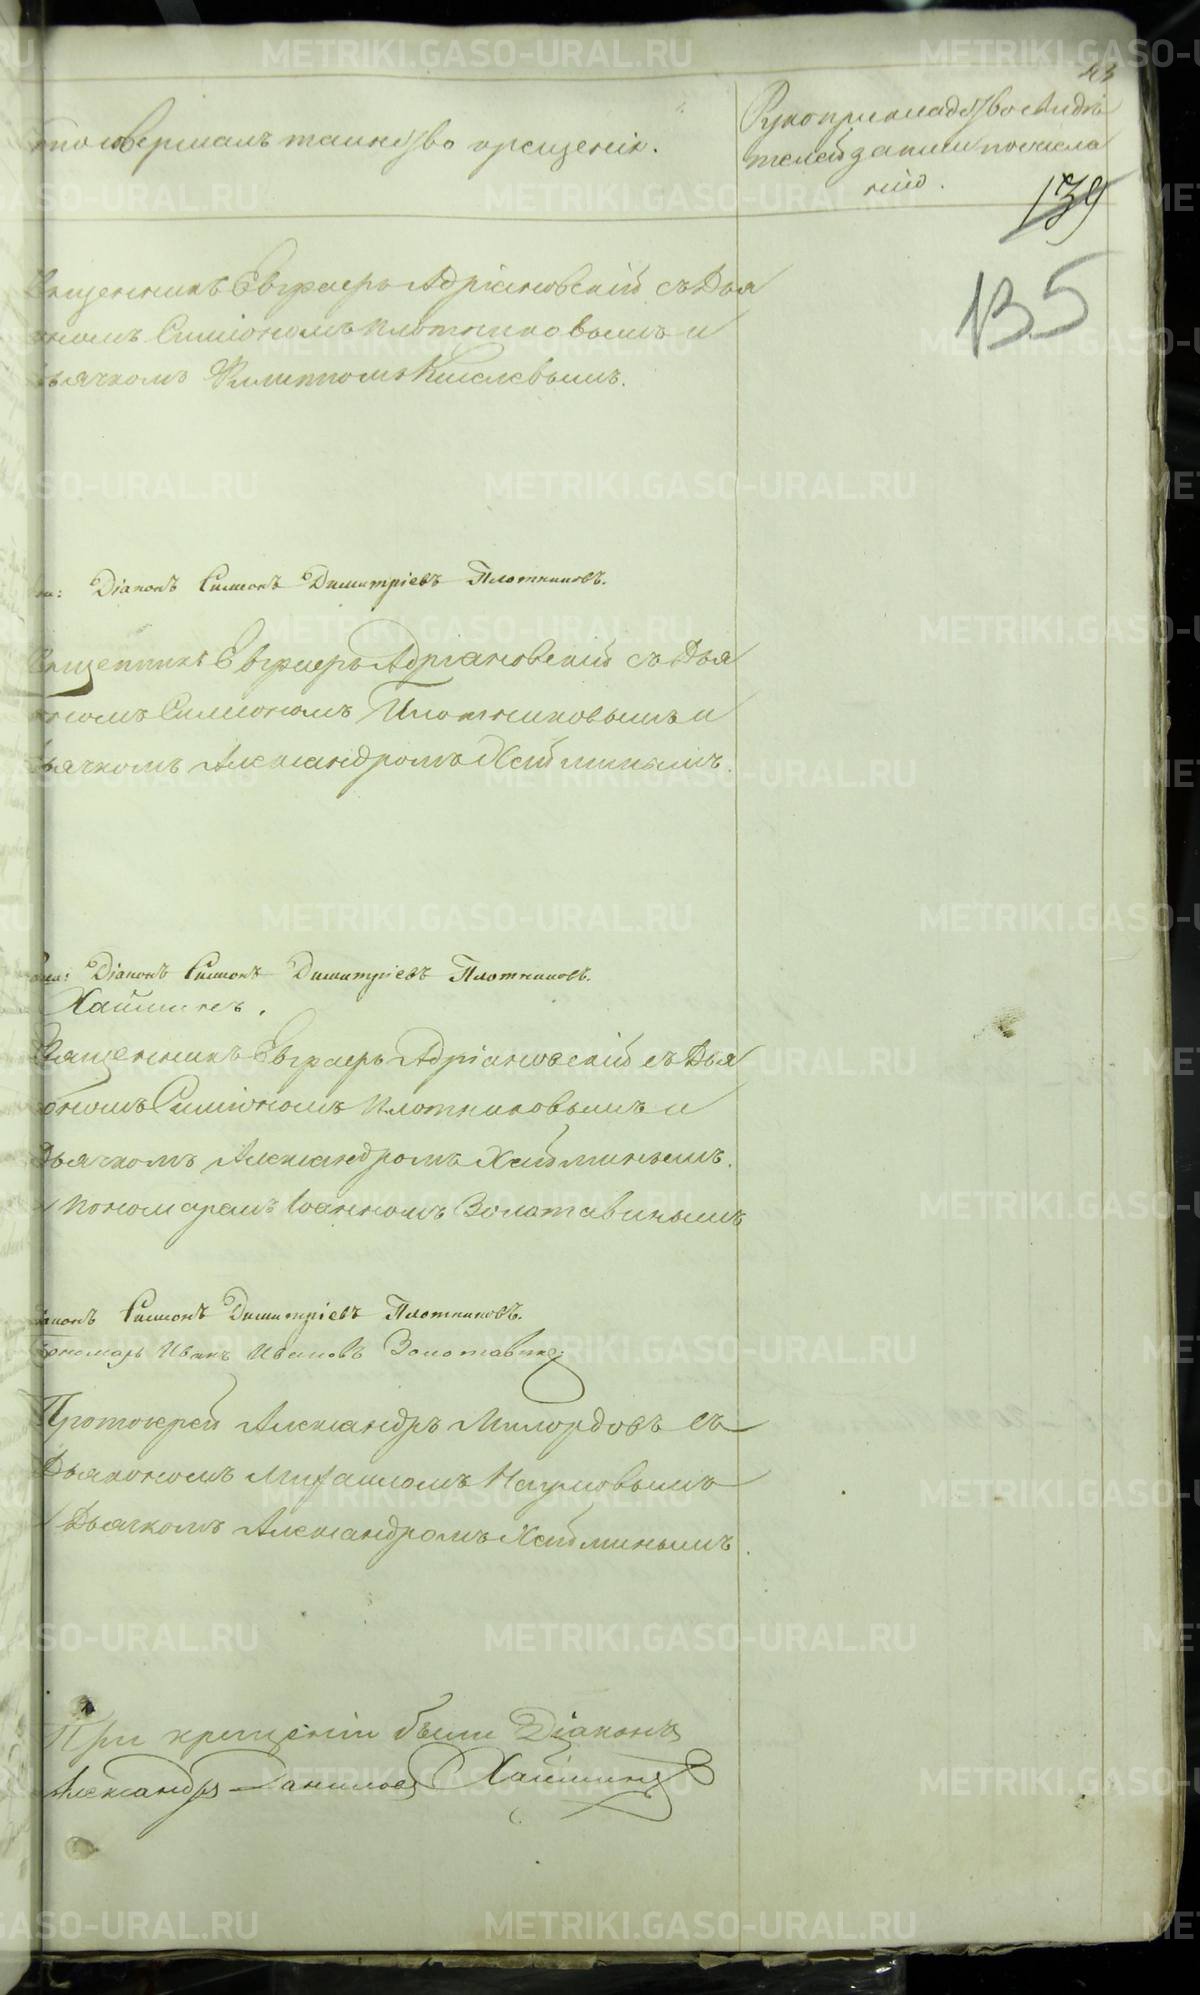 43
то совершалъ таинство крещенія.
Рукоприкладство свидѣ
телей записи по жела
нію.
139
135
вященникъ Евграфъ Адріановскій съ Дья
кономъ Симіономъ Плотниковымъ и
ьячкомъ Филиппомъ Киселевымъ.
Діаконъ Симеонъ Димитріевъ Плотниковъ.
вященникъ Евграфъ Адріановскій съ Дья
кономъ Симіономъ Плотниковымъ и
ьячкомъ Александромъ Хаймпнымъ.
Діаконъ Симеонъ Димитріевъ Плотниковъ.
Хайминъ.
Священникъ Евграфъ Адріановскій съ Дья
кономъ Симіономъ Плотниковымъ и
Дьячкомъ Александромъ Хайминымъ.
и Пономаремъ Іоанномъ Золотавинымъ
Діаконъ Симеонъ Димитріевъ Плотниковъ.
Пономарь Иванъ Ивановъ Золотавинъ
Протоіерей Александръ Милордовъ съ
Дьякономъ Михаиломъ Наумовымъ
и Дьячкомъ Александромъ Хайминымъ.
При крещеніи были Діаконъ
Александръ Даниловъ Хайминъ
METRIKI.GASO-URAL.RU